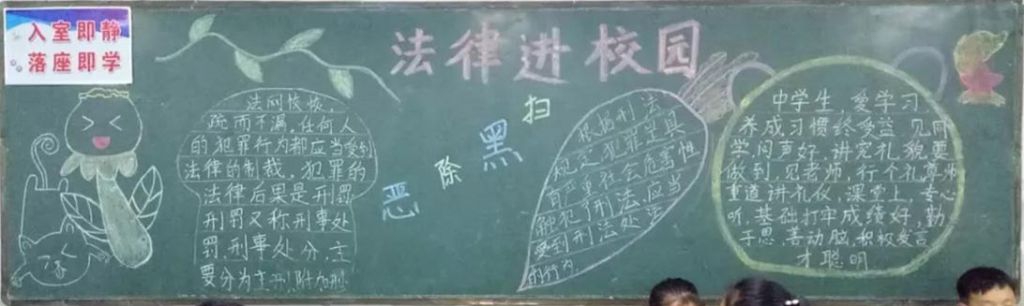 入室即静
落座即学
法律进校园
扫
黑
除
恶
法网恢恢,
疏而不漏,任何人
的犯罪行为都应当受到
法律的制裁,犯罪的
法律后果是刑罚
刑罚又称刑事处
罚,刑事处分,主
要分为主刑,附加刑
根据刑法
规定,犯罪是具
有严重社会危害性
触犯了刑法应当
受到刑法处
的行为
中学生,爱学习
养成习惯终受益,见同
学,问声好,讲究礼貌要
做到,见老师,行个礼,尊师
重道讲礼仪,课堂上,专心
听,基础打牢成绩好,勤
于思,善动脑,积极发言
才聪明